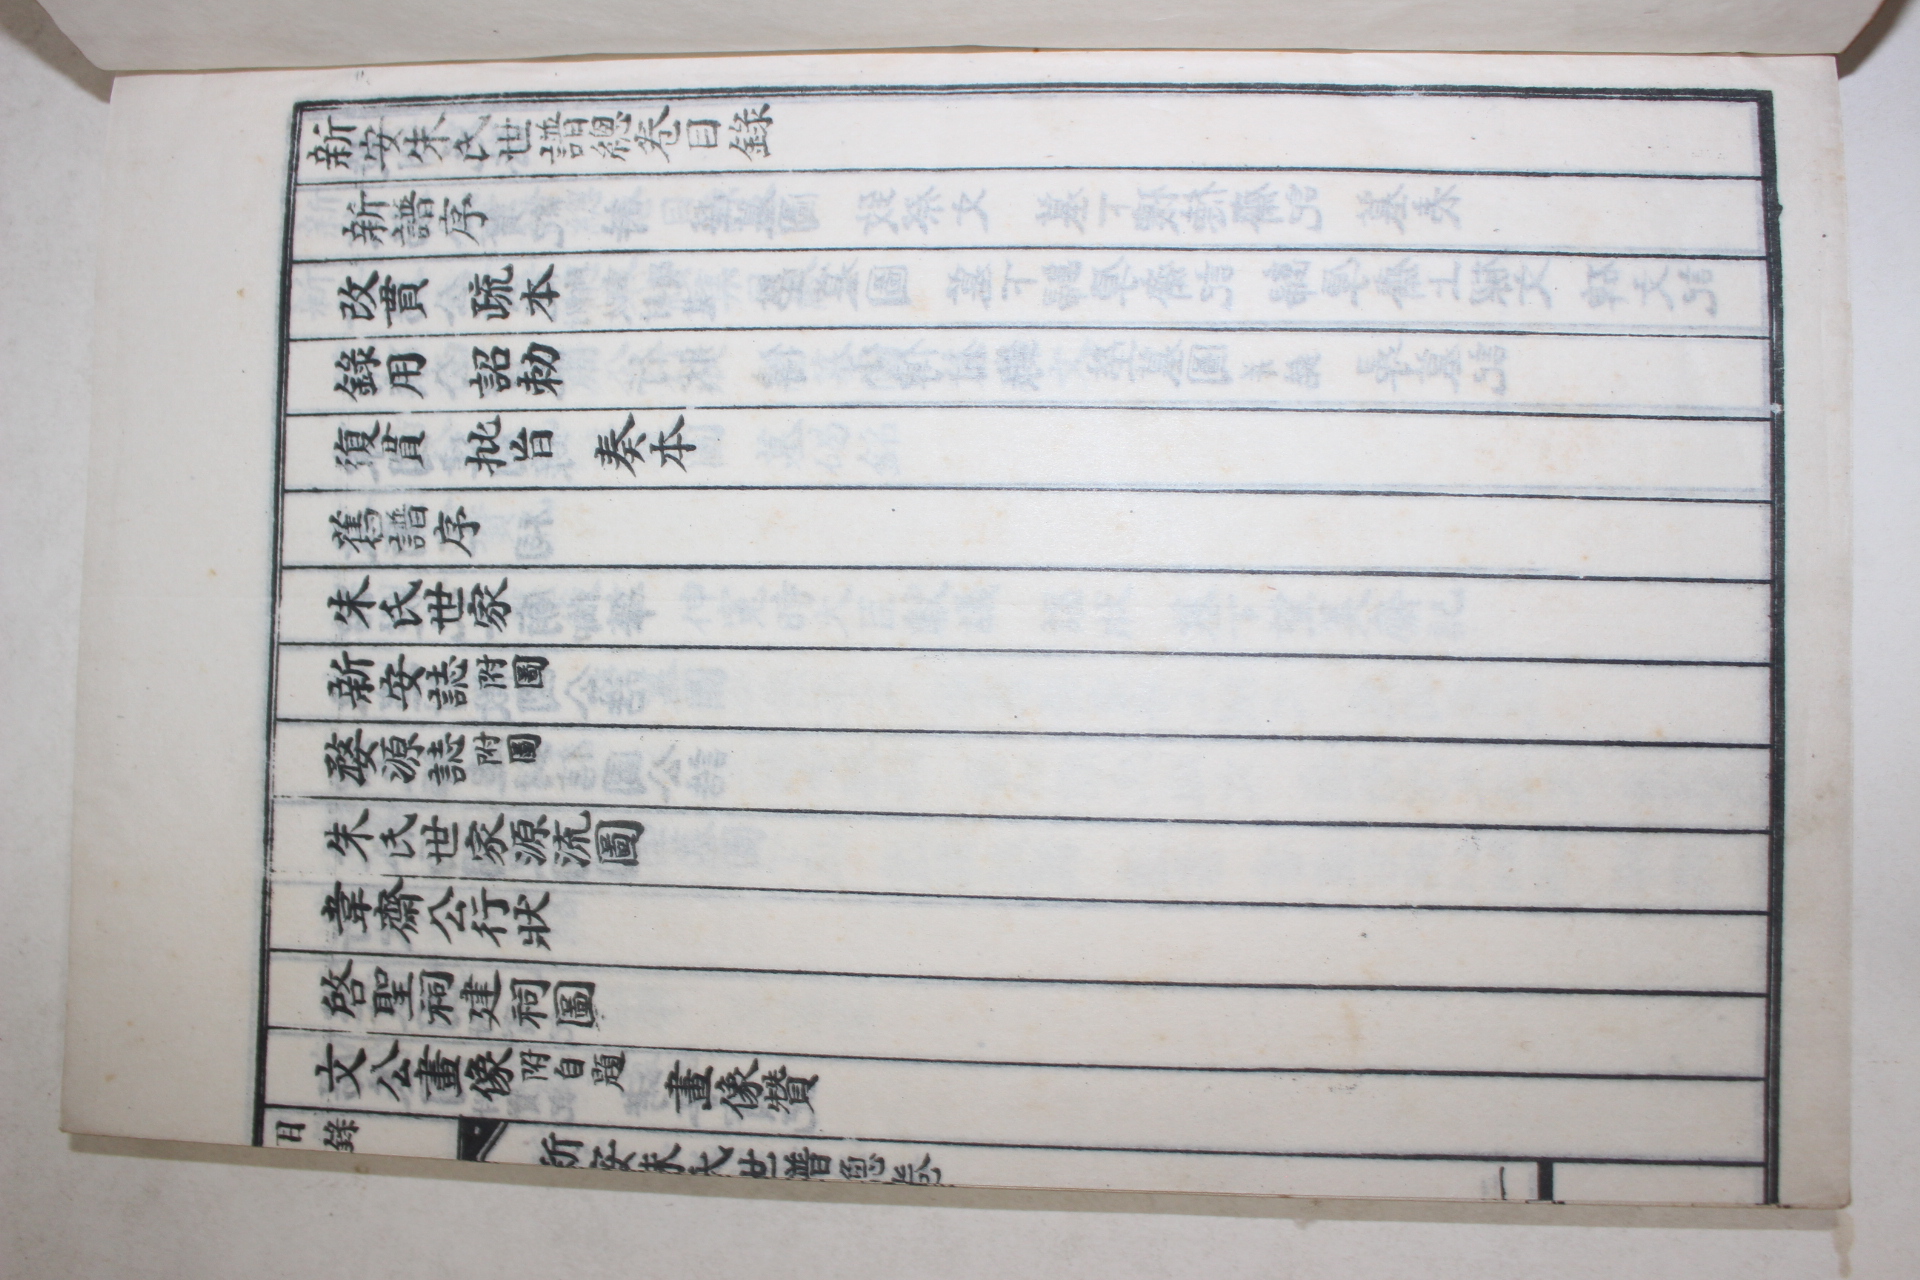 新安朱氏世譜總卷目錄
新譜序
改貫 疏本
錄用 詔勅
復貫 批旨 奏本
舊譜序
朱氏世家
新安誌附圖
婺源誌附圖
朱氏世家源流圖
韋齋公行狀
啓聖祠建祠圖
文公畫像附自題 畫像贊
新安朱氏世譜總卷
目錄
一